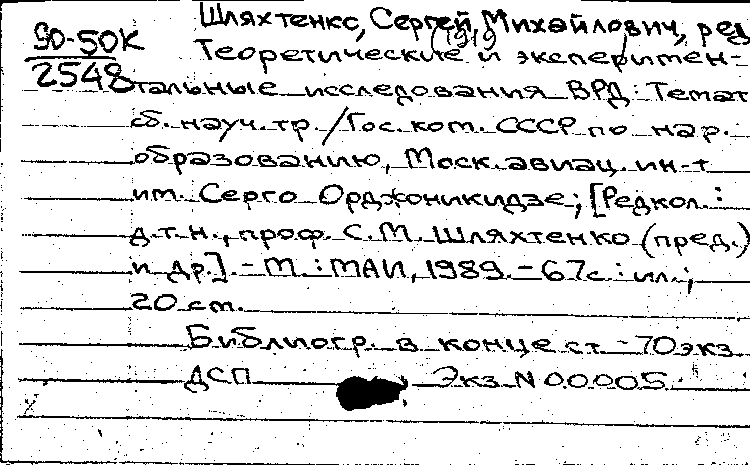 Шляхтенко, Сергей Михайлович, ред
90-50К
2548
(1919
Теоретические и эксперимен-
тальные исследования ВРД: Темат
сб. науч. тр. / Гос. ком. СССР по нар.
образованию, Моск. авиац. ин-т
им. Серго Орджоникидзе; [Редкол.:
д.т.н., проф. С.М. Шляхтенко (пред.)
и др.]. - М.: МАИ, 1989. - 67с.: ил.;
20 см.
Библиогр. в конце ст - 70 экз
ДСП Экз N 00005